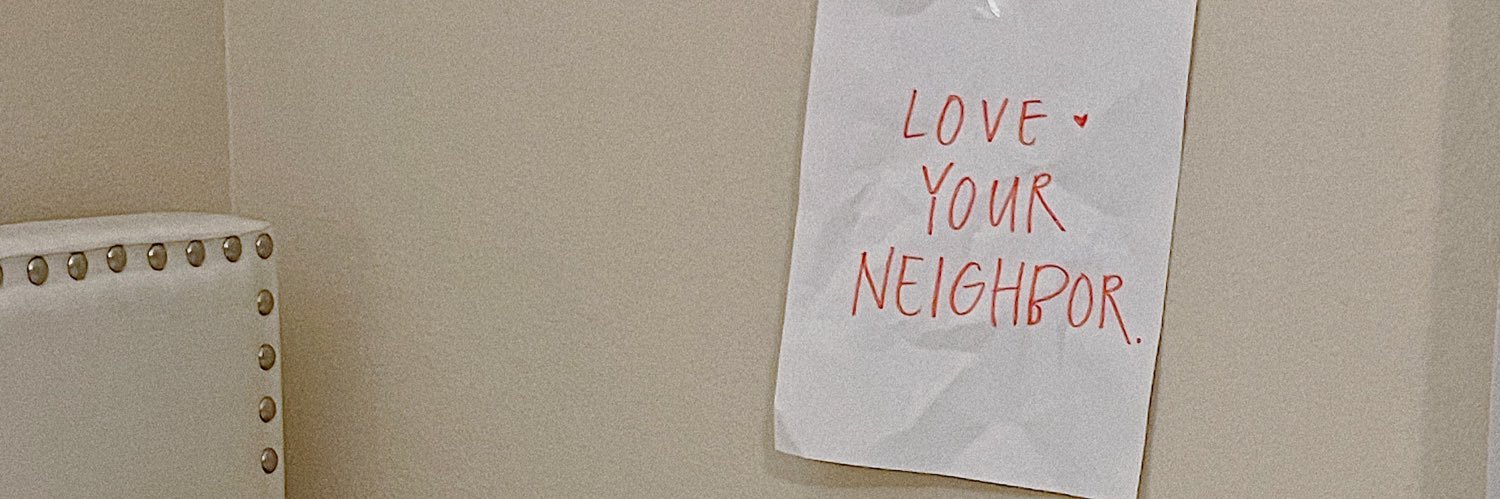 LOVE ♥
YOUR
NEIGHBOR.